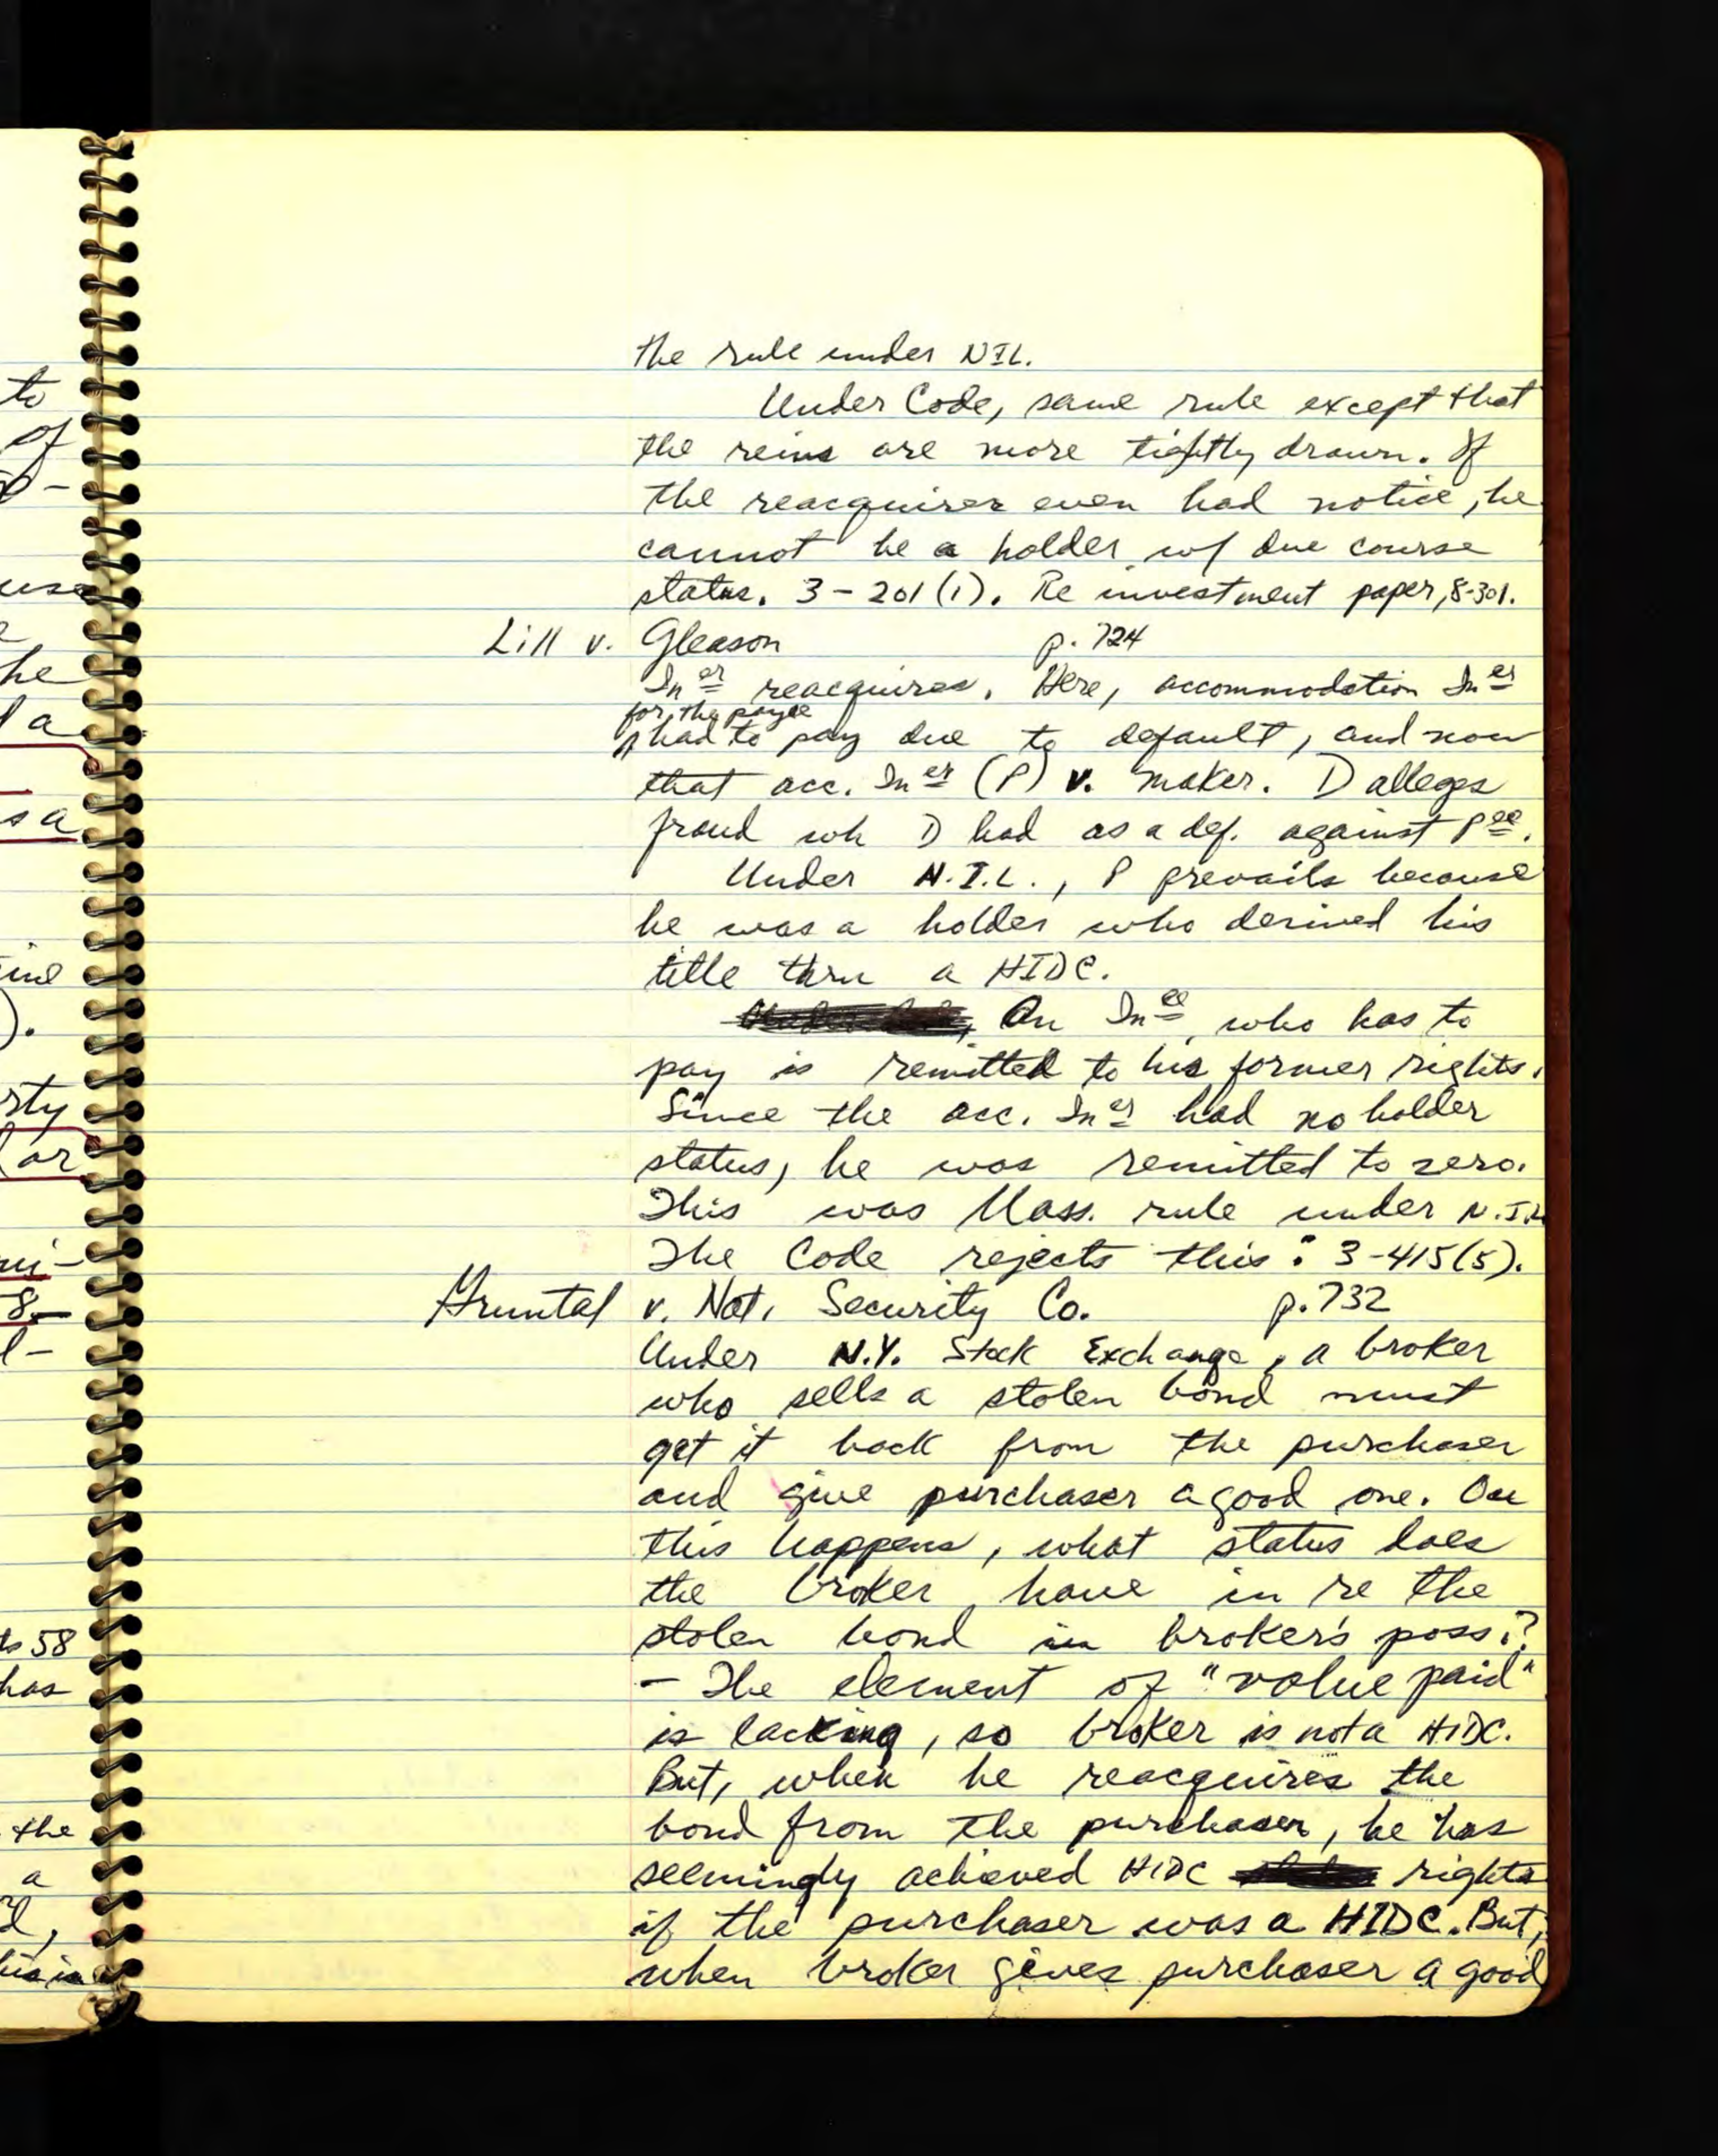 the rule under NIL.
Under Code, same rule except that
the reins are more tightly drawn. If
the reacquirer even had notice, he
cannot be a holder w/ due course
status. 3-201(1). Re investment paper, 8-301.
Lill v. Gleason p. 724
In er reacquires. Here, accommodation In er
for the payee
had to pay due to default, and now
that acc. In er (P) v. maker. D alleges
fraud wh D had as a def. against P ee.
Under N.I.L., P prevails because
he was a holder who derived his
title thru a HIDC.
An In ee, who has to
pay is remitted to his former rights.
Since the acc. In er had no holder
status, he was remitted to zero.
This was Mass. rule under N.I.L
The Code rejects this: 3-415(5).
Gruntal v. Nat. Security Co. p. 732
Under N.Y. Stock Exchange, a broker
who sells a stolen bond must
get it back from the purchaser
and give purchaser a good one.
this happens, what status does
the broker have in re the
stolen bond in broker's poss.?
- The element of "value paid"
is lacking, so broker is not a HIDC.
But, when he reacquires the
bond from the purchaser, he has
seemingly achieved HIDC rights
if the purchaser was a HIDC. But,
when broker gives purchaser a good
to
of
he
a
sa
rty
or
8-
58
has
the
a